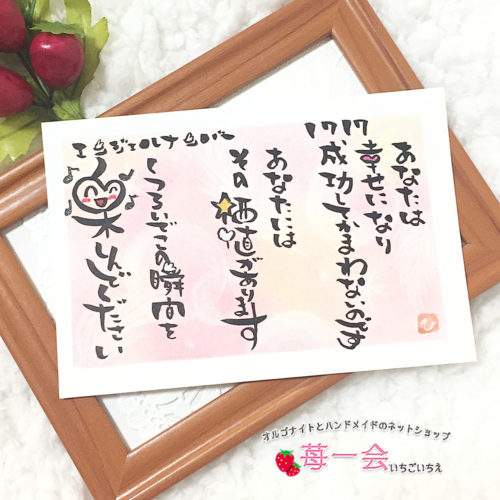 あなたは
1717 幸せになり
成功してかまわないのです
あなたには
その価値があります
くつろいでこの瞬間を
楽しんでください
エンジェルナンバー
オルゴナイトとハンドメイドのネットショップ
苺一会 いちごいちえ